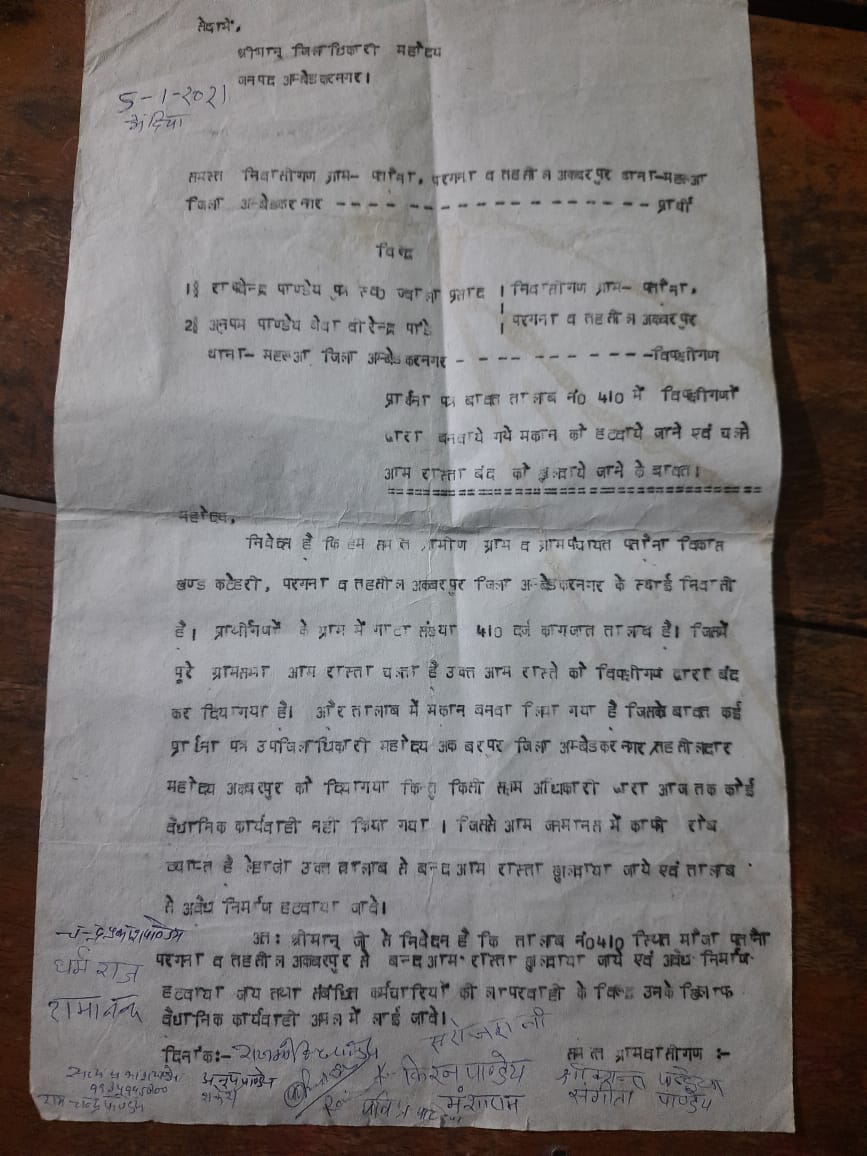 सेवा में,
श्रीमान् जिलाधिकारी महोदय
जनपद अम्बेडकरनगर।
5-1-2021
समस्त निवासीगण ग्राम- परगना व तहसील अकबरपुर थाना-महरुआ
जिला अम्बेडकरनगर -------------------- प्रार्थी
विरुद्ध
1§ राघवेन्द्र पाण्डेय पुत्र स्व0 ज्वाला प्रसाद | निवासीगण ग्राम-
2§ अनुपम पाण्डेय बेवा वीरेन्द्र पांडे | परगना व तहसील अकबरपुर
थाना- महरुआ जिला अम्बेडकरनगर ------------विपक्षीगण
प्रार्थना पत्र बाबत तालाब नं0 410 में विपक्षीगणों
द्वारा बनवाये गये मकान को हटवाये जाने एवं चलते
आम रास्ता बंद को खुलवाये जाने के बाबत।
महोदय,
निवेदन है कि हम समस्त ग्रामीण ग्राम व ग्रामपंचायत विकास
खण्ड कटेहरी, परगना व तहसील अकबरपुर जिला अम्बेडकरनगर के स्थाई निवासी
है। के ग्राम में गाटा संख्या 410 दर्ज कागजात तालाब है। जिसमें
पूरे ग्रामसभा आम रास्ता चलता है उक्त आम रास्ते को विपक्षीगण द्वारा बंद
कर दिया गया है। और तालाब में मकान बनवा लिया गया है जिसके बाबत कई
प्रार्थना पत्र उपजिलाधिकारी महोदय अकबरपुर जिला अम्बेडकरनगर/तहसीलदार
महोदय अकबरपुर को दिया गया किन्तु किसी सक्षम अधिकारी द्वारा आज तक कोई
वैधानिक कार्यवाही नहीं किया गया। जिससे आम जनमानस में काफी रोष
व्याप्त है लेहाजा उक्त तालाब से बन्द आम रास्ता खुलवाया जाये एवं तालाब
से अवैध निर्माण हटवाया जावे।
अत: श्रीमान् जी से निवेदन है कि तालाब नं0410 स्थित मौजा
परगना व तहसील अकबरपुर से बन्द आम रास्ता खुलवाया जाये एवं अवैध निर्माण
हटवाया जाय तथा संबंधित कर्मचारियों की लापरवाही के विरुद्ध उनके खिलाफ
वैधानिक कार्यवाही अमल में लाई जावे।
धर्मराज
रामानन्द
सरोजरानी
दिनांक:-
समस्त ग्रामवासीगण :-
किरन पाण्डेय
अनूप पाण्डेय
मंशाराम
संगीता पाण्डेय